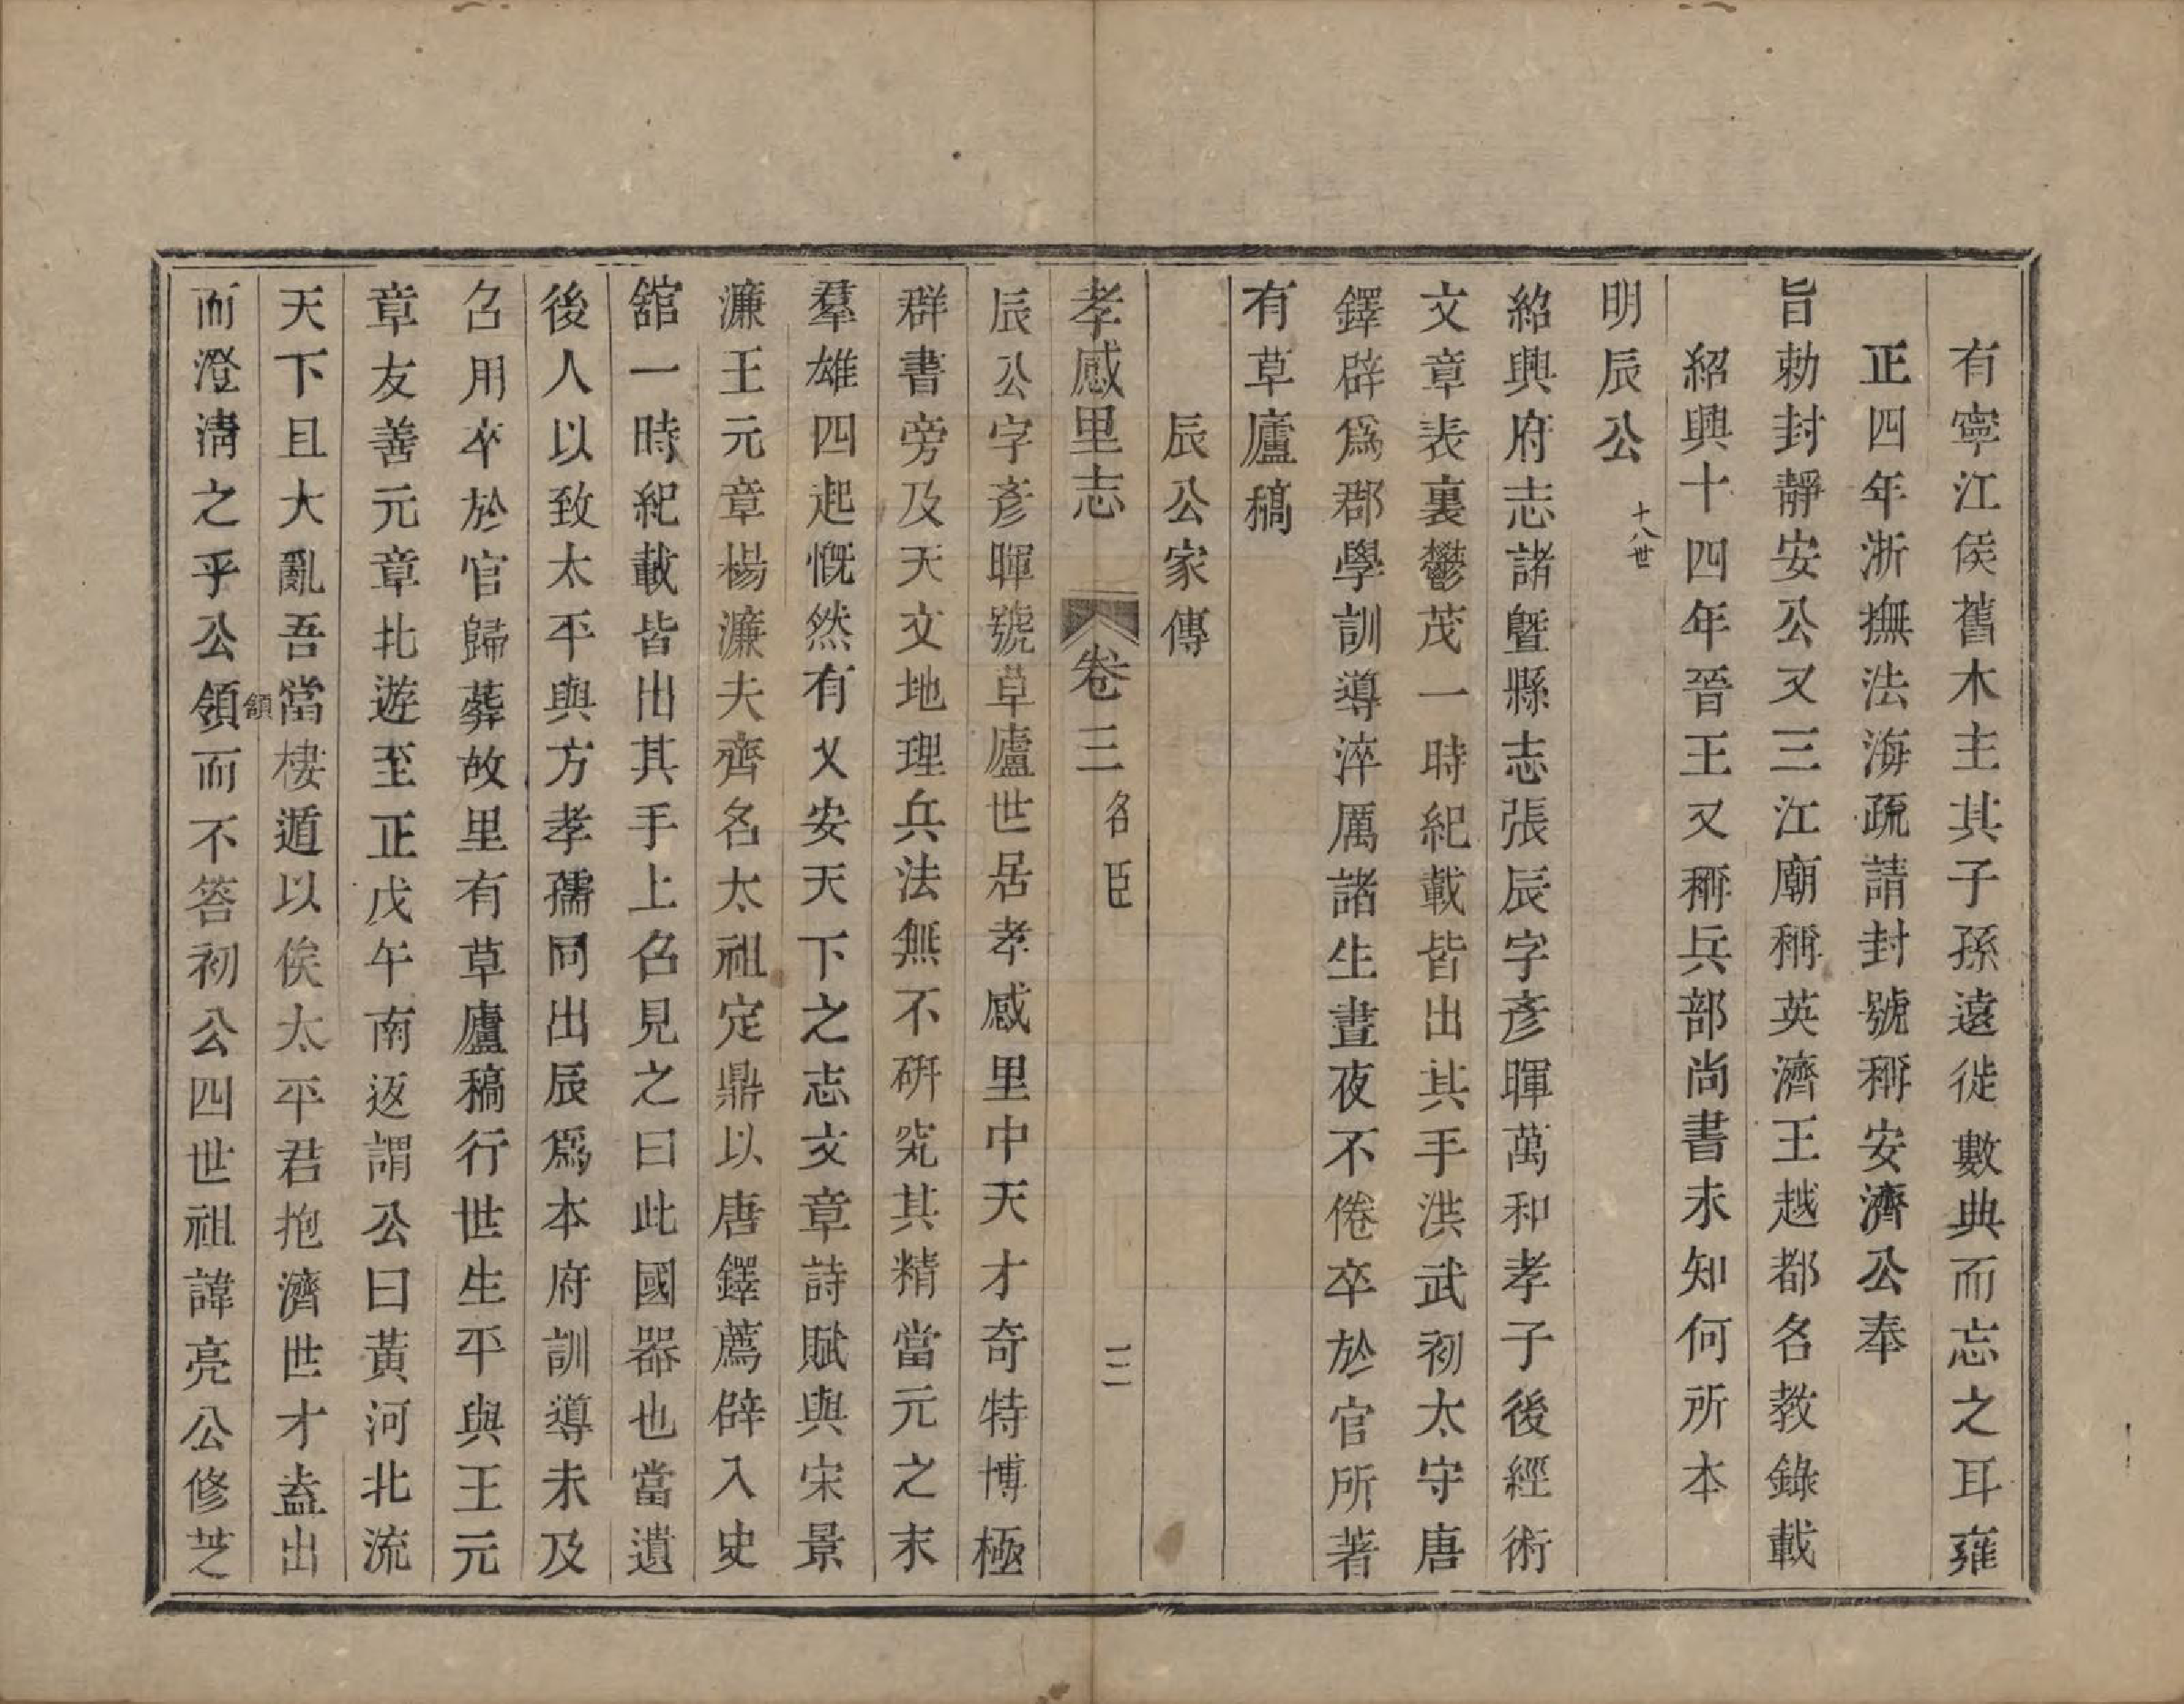 有寧江侯舊木主其子孫遠徙數典而忘之耳雍
正四年浙撫法海疏請封號稱安濟公奉
旨勅封靜安公又三江廟稱英濟王越都名教錄載
紹興十四年晉王又稱兵部尚書未知何所本
明辰公 十八世
紹興府志諸暨縣志張辰字彥暉萬和孝子後經術
文章表裏鬱茂一時紀載皆出其手洪武初太守唐
鐸辟爲郡學訓導淬厲諸生晝夜不倦卒於官所著
有草廬稿
辰公家傳
孝感里志 卷三 名臣 三
辰公字彥暉號草廬世居孝感里中天才奇特博極
群書旁及天文地理兵法無不硏究其精當元之末
羣雄四起慨然有乂安天下之志文章詩賦與宋景
濂王元章楊濂夫齊名太祖定鼎以唐鐸薦辟入史
舘一時紀載皆出其手上召見之曰此國器也當遺
後人以致太平與方孝孺同出辰爲本府訓導未及
召用卒於官歸葬故里有草廬稿行世生平與王元
章友善元章北遊至正戊午南返謂公曰黃河北流
天下且大亂吾當棲遁以俟太平君抱濟世才盍出
而澄淸之乎公領而不答初公四世祖諱亮公修芝
頷